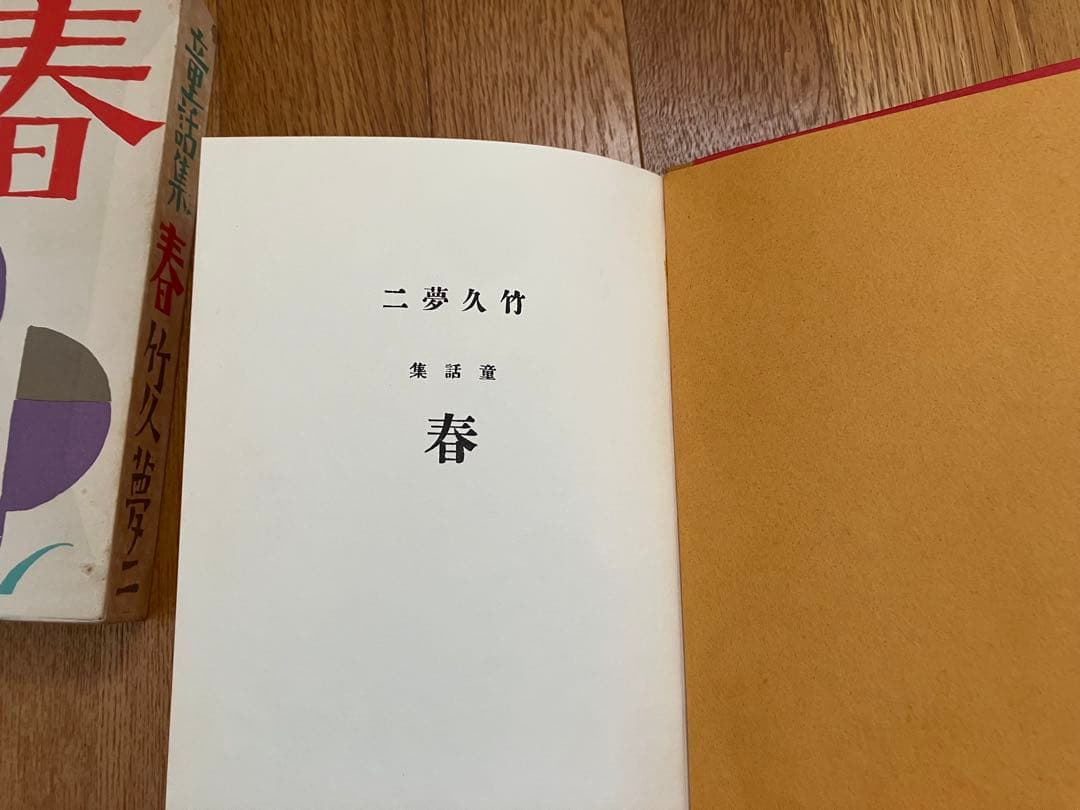 春
童話集 春 竹久夢二
竹久夢二
童話集
春